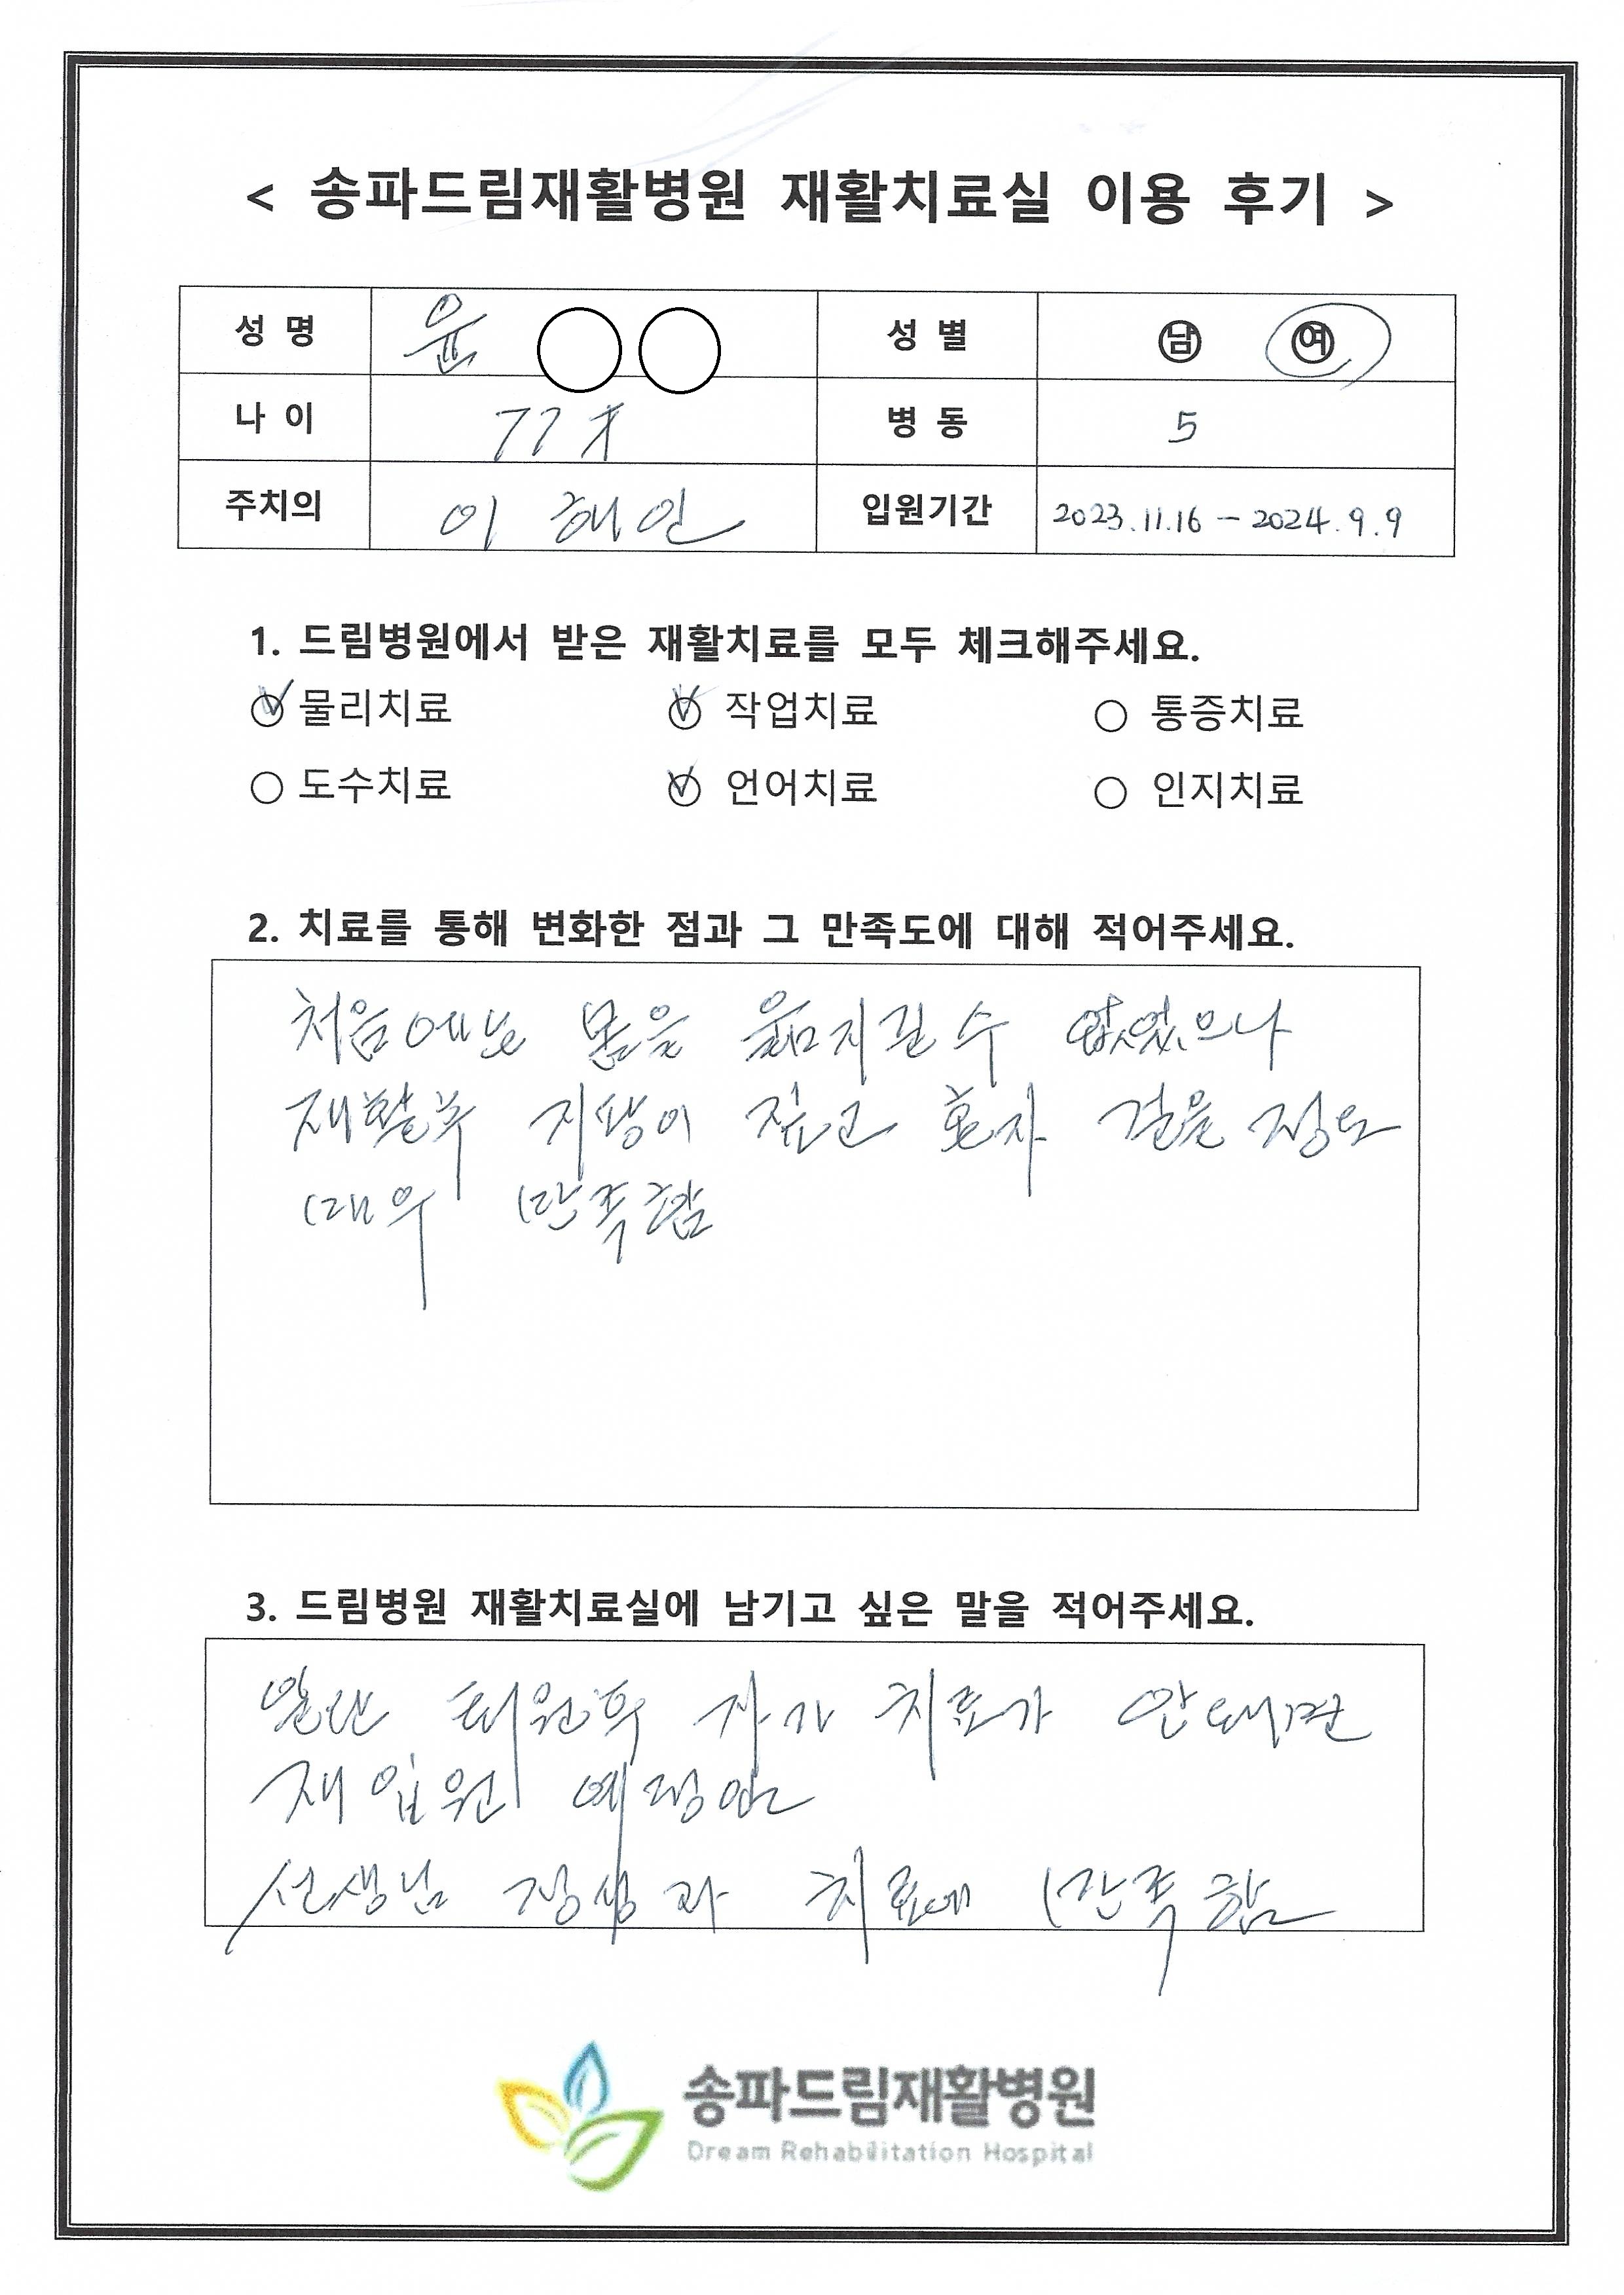 < 송파드림재활병원 재활치료실 이용 후기 >
성 명 윤 ○○ 성 별 ㉚남 ㉚여
나 이 77才 병 동 5
주치의 이해인 입원기간 2023.11.16 - 2024.9.9
1. 드림병원에서 받은 재활치료를 모두 체크해주세요.
물리치료 작업치료 통증치료
도수치료 언어치료 인지치료
2. 치료를 통해 변화한 점과 그 만족도에 대해 적어주세요.
처음에는 몸을 움지길수 없었으나
재활후 지팡이 짚고 혼자 걸을 정도
매우 만족함
3. 드림병원 재활치료실에 남기고 싶은 말을 적어주세요.
일단 퇴원후 자가 치료가 안돼면
재입원 예정임
선생님 정성과 치료에 만족함
송파드림재활병원
Dream Rehabilitation Hospital